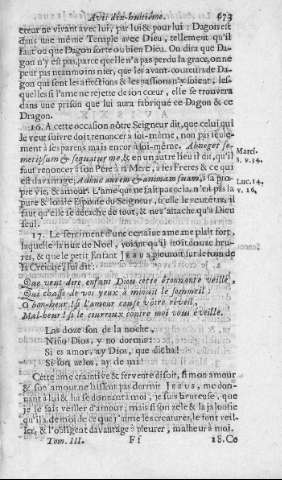 Avis dix-huitiéme. 673
cœur ne vivant avec luy, par luy & pour luy: Dagon est
dans une même Temple avec Dieu, tellement qu'il
faut ou que Dagon sorte ou bien Dieu. On dira que Da-
gon n'y est pas, parce que l'on n'a pas perdu la grace, on ne
peut pas neanmoins nier, que les avant-coureurs de Da-
gon qui sont les affections & les passions n'y soient, les-
quelles si l'ame ne rejette de son cœur, elle se trouvera
dans une prison que lui aura fabriqué ce Dagon & ce
Dragon.
16. A cette occasion nôtre Seigneur dit, que celui qui
le veut suivre doit renoncer à soi-même, non pas seule-
ment à ses parens mais encor à soi-même. Abneget se-
metipsum & sequatur me, & en un autre lieu il dit, qu'il
faut renoncer à son Pere à sa Mere, à ses Freres & ce qui
est davantage; Adhuc autem & animam suam, à sa pro-
pre vie, & amour. L'ame qui ne fait pas cela, n'est pas la
pure & loiale Epouse du Seigneur, si elle ne
faut qu'elle se détache de tout, & ne s'attache qu'à Dieu
seul.
Marc 8. v. 34.
Luc. 14.
v. 26,
17. Le sentiment d'une certaine ame me plait fort,
laquelle la nuit de Noel, voiant qu'il
se, & que le petit Enfant JESUS
la Creiche, lui dit:
Que veut dire, enfant Dieu cette étonnante veille,
Qui chasse de vos yeux à minuit le sommeil?
O bon-heur! si l'amour cause vôtre réveil,
Mal-heur! si le courroux contre moi vous éveille.
Las doze son de la noche,
Niño Dios, y no dormis:
Si es amor, ay Dios, que dicha!
Si son zelos, ay de mi!
Cette ame craintive & fervente disoit, si mon amour
& son amour ne laissent pas dormir JESUS, me don-
nant à lui & lui se donnant à moi, je suis heureuse, que
je le fais veiller d'amour; mais si son zele & la jalousie
qu'il a de mon ame, & l'amour par les creatures, le font veil-
ler, & l'obligent davantage à pleurer, malheur à moi.
Tom. III. Ff 18. Co